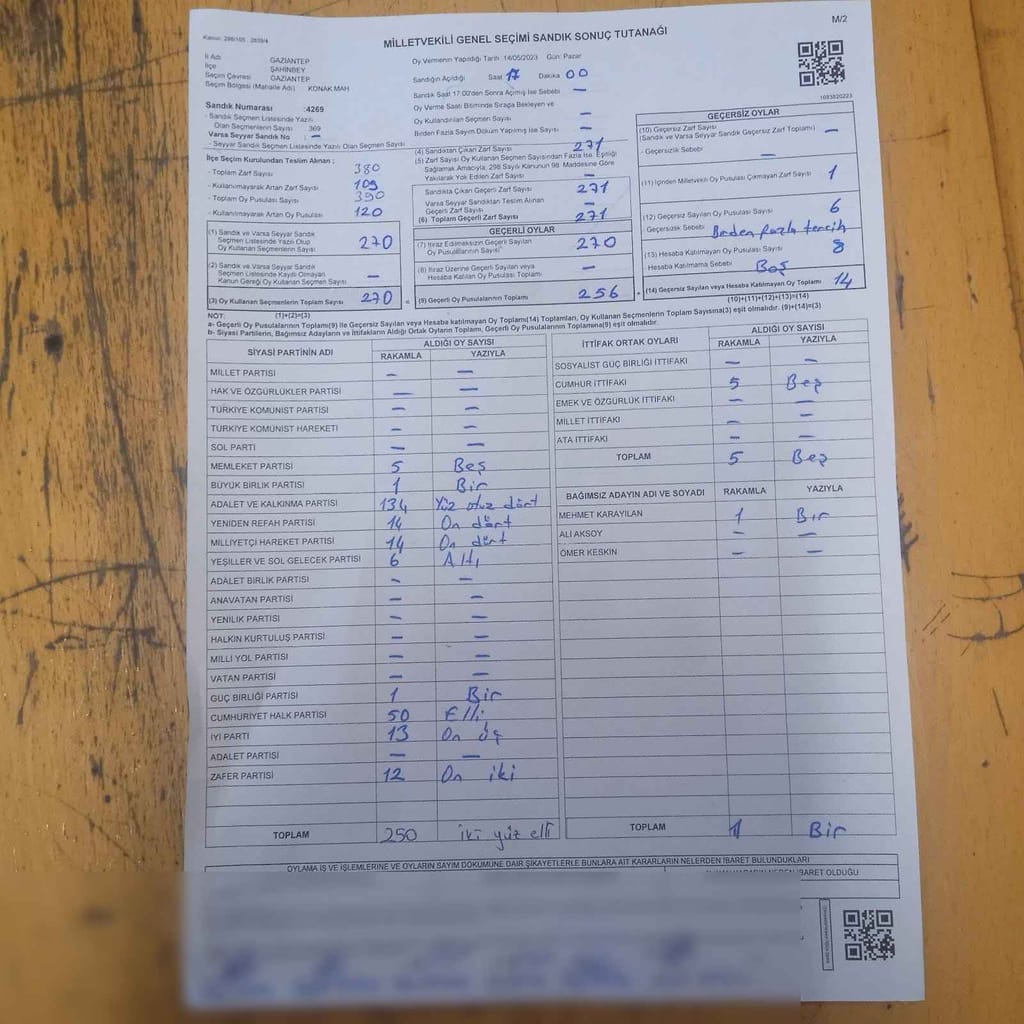 M/2
Kanun: 298/105 , 2839/4
MİLLETVEKİLİ GENEL SEÇİMİ SANDIK SONUÇ TUTANAĞI
İl Adı GAZİANTEP
İlçe ŞAHİNBEY
Seçim Çevresi GAZİANTEP
Seçim Bölgesi (Mahalle Adı) : KONAK MAH
Oy Vermenin Yapıldığı Tarih 14/05/2023 Gün: Pazar
Sandığın Açıldığı Saat 17 Dakika 00
Sandık Saat 17:00'den Sonra Açılmış İse Sebebi —
Oy Verme Saati Bitiminde Sırada Bekleyen ve
Oy Kullandırılan Seçmen Sayısı —
Birden Fazla Sayım Döküm Yapılmış İse Sayısı —
1693820223
Sandık Numarası :4269
- Sandık Seçmen Listesinde Yazılı
Olan Seçmenlerin Sayısı 369
Varsa Seyyar Sandık No : —
- Seyyar Sandık Seçmen Listesinde Yazılı Olan Seçmen Sayısı
İlçe Seçim Kurulundan Teslim Alınan :
- Toplam Zarf Sayısı 380
- Kullanılmayarak Artan Zarf Sayısı 109
- Toplam Oy Pusulası Sayısı 390
- Kullanılmayarak Artan Oy Pusulası 120
(1) Sandık ve Varsa Seyyar Sandık
Seçmen Listesinde Yazılı Olup
Oy Kullanan Seçmenlerin Sayısı 270
(2) Sandık ve Varsa Seyyar Sandık
Seçmen Listesinde Kayıtlı Olmayan
Kanun Gereği Oy Kullanan Seçmen Sayısı —
(3) Oy Kullanan Seçmenlerin Toplam Sayısı 270
(1)+(2)=(3)
(4) Sandıktan Çıkan Zarf Sayısı 271
(5) Zarf Sayısı Oy Kullanan Seçmen Sayısından Fazla İse, Eşitliği
Sağlamak Amacıyla, 298 Sayılı Kanunun 98. Maddesine Göre
Yakılarak Yok Edilen Zarf Sayısı —
Sandıkta Çıkan Geçerli Zarf Sayısı 271
Varsa Seyyar Sandıktan Teslim Alınan
Geçerli Zarf Sayısı —
(6) Toplam Geçerli Zarf Sayısı 271
GEÇERLİ OYLAR
(7) İtiraz Edilmeksizin Geçerli Sayılan
Oy Pusulalarının Sayısı 270
(8) İtiraz Üzerine Geçerli Sayılan veya
Hesaba Katılan Oy Pusulası Toplamı —
= (9) Geçerli Oy Pusulalarının Toplamı 256 +
GEÇERSİZ OYLAR
(10) Geçersiz Zarf Sayısı
(Sandık ve Varsa Seyyar Sandık Geçersiz Zarf Toplamı) —
- Geçersizlik Sebebi —
(11) İçinden Milletvekili Oy Pusulası Çıkmayan Zarf Sayısı 1
(12) Geçersiz Sayılan Oy Pusulası Sayısı 6
Geçersizlik Sebebi Birden fazla tercih
(13) Hesaba Katılmayan Oy Pusulası Sayısı 8
Hesaba Katılmama Sebebi Boş
(14) Geçersiz Sayılan veya Hesaba Katılmayan Oy Toplamı 14
(10)+(11)+(12)+(13)=(14)
NOT:
a- Geçerli Oy Pusulaları Toplamı(9) ile Geçersiz Sayılan veya Hesaba katılmayan Oy Toplamı(14) Toplamları, Oy Kullanan Seçmenlerin Toplam Sayısına(3) eşit olmalıdır. (9)+(14)=(3)
b- Siyasi Partilerin, Bağımsız Adayların ve İttifakların Aldığı Ortak Oyların Toplam, Geçerli Oy Pusulalarının Toplamına(9) eşit olmalıdır.
SİYASİ PARTİNİN ADI ALDIĞI OY SAYISI
RAKAMLA YAZIYLA
MİLLET PARTİSİ — —
HAK VE ÖZGÜRLÜKLER PARTİSİ — —
TÜRKİYE KOMÜNİST PARTİSİ — —
TÜRKİYE KOMÜNİST HAREKETİ — —
SOL PARTİ — —
MEMLEKET PARTİSİ 5 Beş
BÜYÜK BİRLİK PARTİSİ 1 Bir
ADALET VE KALKINMA PARTİSİ 134 Yüz otuz dört
YENİDEN REFAH PARTİSİ 14 On dört
MİLLİYETÇİ HAREKET PARTİSİ 14 On dört
YEŞİLLER VE SOL GELECEK PARTİSİ 6 Altı
ADALET BİRLİK PARTİSİ — —
ANAVATAN PARTİSİ — —
YENİLİK PARTİSİ — —
HALKIN KURTULUŞ PARTİSİ — —
MİLLİ YOL PARTİSİ — —
VATAN PARTİSİ — —
GÜÇ BİRLİĞİ PARTİSİ 1 Bir
CUMHURİYET HALK PARTİSİ 50 Elli
İYİ PARTİ 13 On üç
ADALET PARTİSİ — —
ZAFER PARTİSİ 12 On iki
TOPLAM 250 iki yüz elli
İTTİFAK ORTAK OYLARI ALDIĞI OY SAYISI
RAKAMLA YAZIYLA
SOSYALİST GÜÇ BİRLİĞİ İTTİFAKI — —
CUMHUR İTTİFAKI 5 Beş
EMEK VE ÖZGÜRLÜK İTTİFAKI — —
MİLLET İTTİFAKI — —
ATA İTTİFAKI — —
TOPLAM 5 Beş
BAĞIMSIZ ADAYIN ADI VE SOYADI RAKAMLA YAZIYLA
MEHMET KARAYILAN 1 Bir
ALİ AKSOY — —
ÖMER KESKİN — —
TOPLAM 1 Bir
OYLAMA İŞ VE İŞLEMLERİNE VE OYLARIN SAYIM DÖKÜMÜNE DAİR ŞİKAYETLERLE BUNLARA AİT KARARLARIN NELERDEN İBARET BULUNDUKLARI
İBARET OLDUĞU